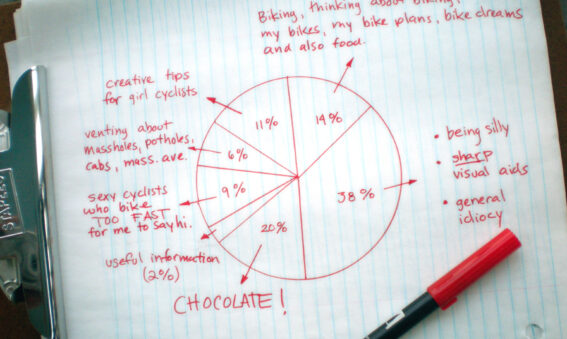 Biking, thinking about biking,
my bikes, my bike plans, bike dreams
and also food.
creative tips
for girl cyclists
11%
14%
venting about
Massholes, potholes,
cabs, mass. ave.
6%
• being silly
• sharp
visual aids
• general
idiocy
38%
sexy cyclists
who bike
TOO FAST
for me to say hi.
9%
20%
useful information
(2%)
CHOCOLATE!